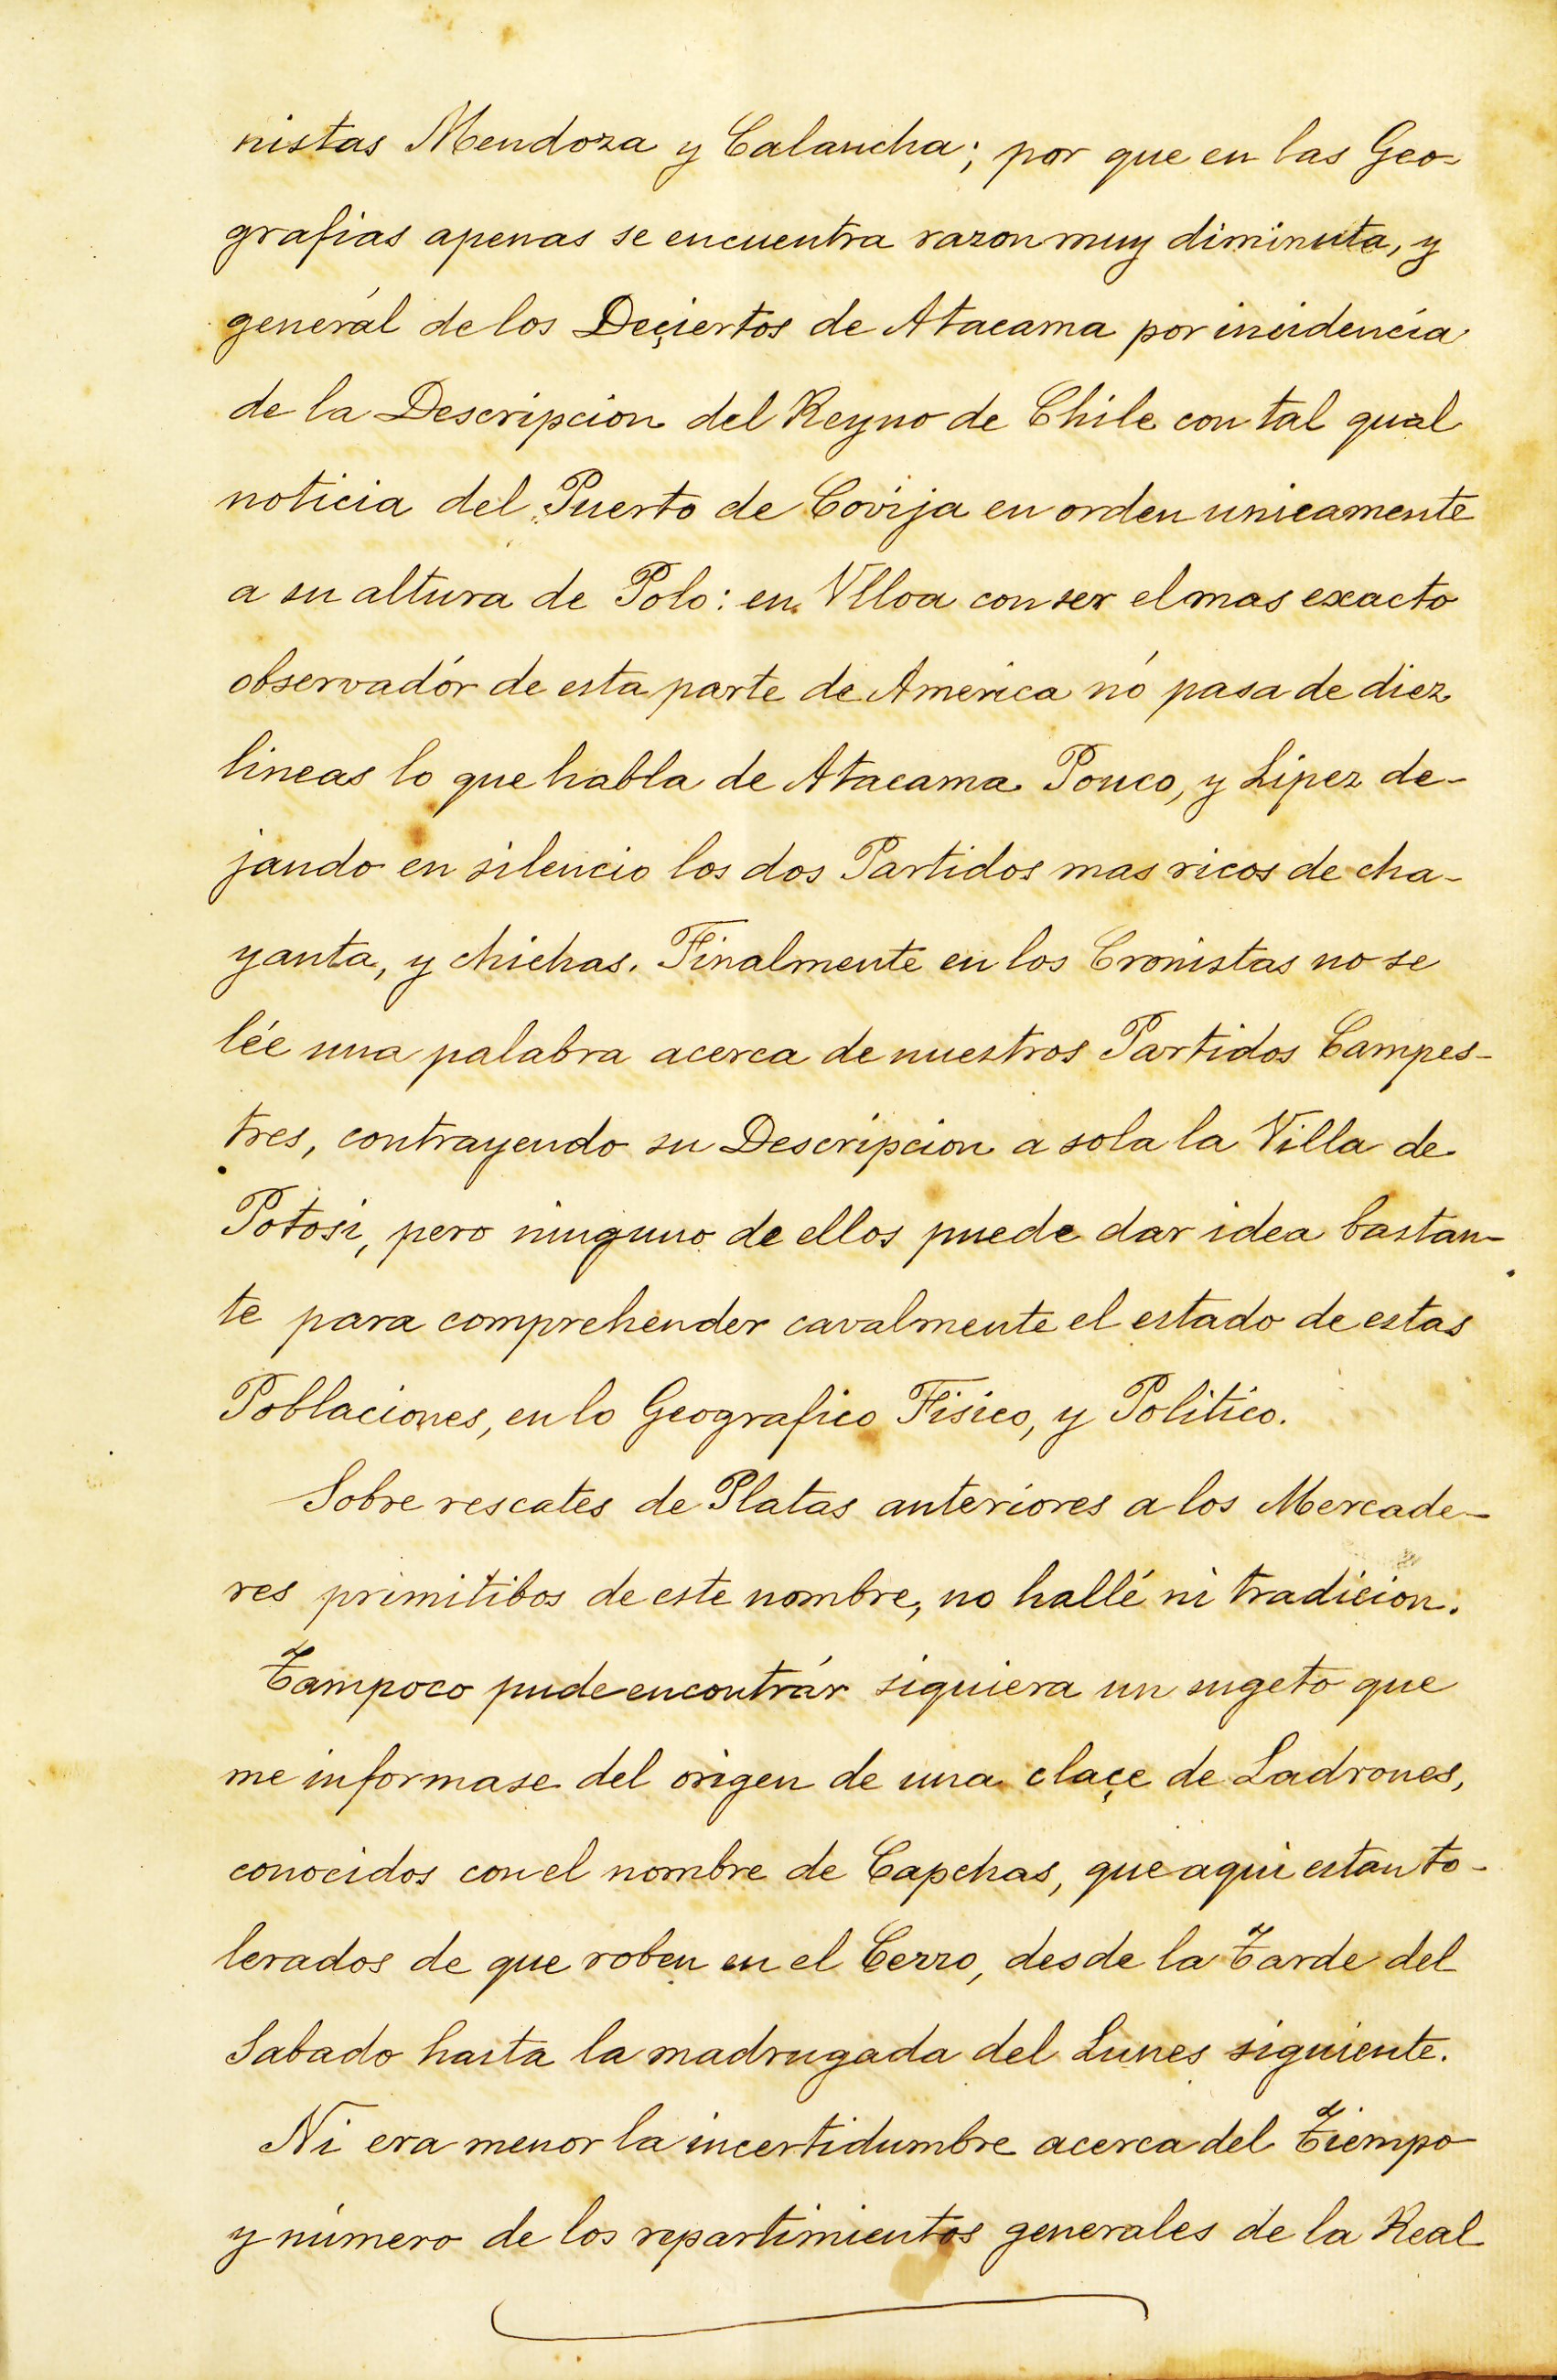 nistas Mendoza y Calancha; por que en las Geo-
grafias apenas se encuentra razon muy diminuta, y
generál de los Deçiertos de Atacama por incidencia
de la Descripcion del Reyno de Chile con tal qual
noticia del Puerto de Covija en orden unicamente
a su altura de Polo: en Vlloa con ser el mas exacto
observadór de esta parte de America nó pasa de diez
lineas lo que habla de Atacama Pouco, y Lipez de-
jando en silencio los dos Partidos mas ricos de cha-
yanta, y chichas. Finalmente en los Cronistas no se
lée una palabra acerca de nuestros Partidos Campes-
tres, contrayendo su Descripcion a sola la Villa de
Potosi, pero ninguno de ellos puede dar idea bastan-
te para comprehender cavalmente el estado de estas
Poblaciones, en lo Geografico Fisico, y Politico.
Sobre rescates de Platas anteriores a los Mercade-
res primitibos de este nombre, no hallé ni tradicion.
Tampoco pude encontrár siquiera un sugeto que
me informase del origen de una claçe de Ladrones,
conocidos con el nombre de Capchas, que aqui estan to-
lerados de que roben en el Cerro, desde la Tarde del
Sabado hasta la madrugada del Lunes siguiente.
Ni era menor la incertidumbre acerca del Tiempo
y número de los repartimientos generales de la Real